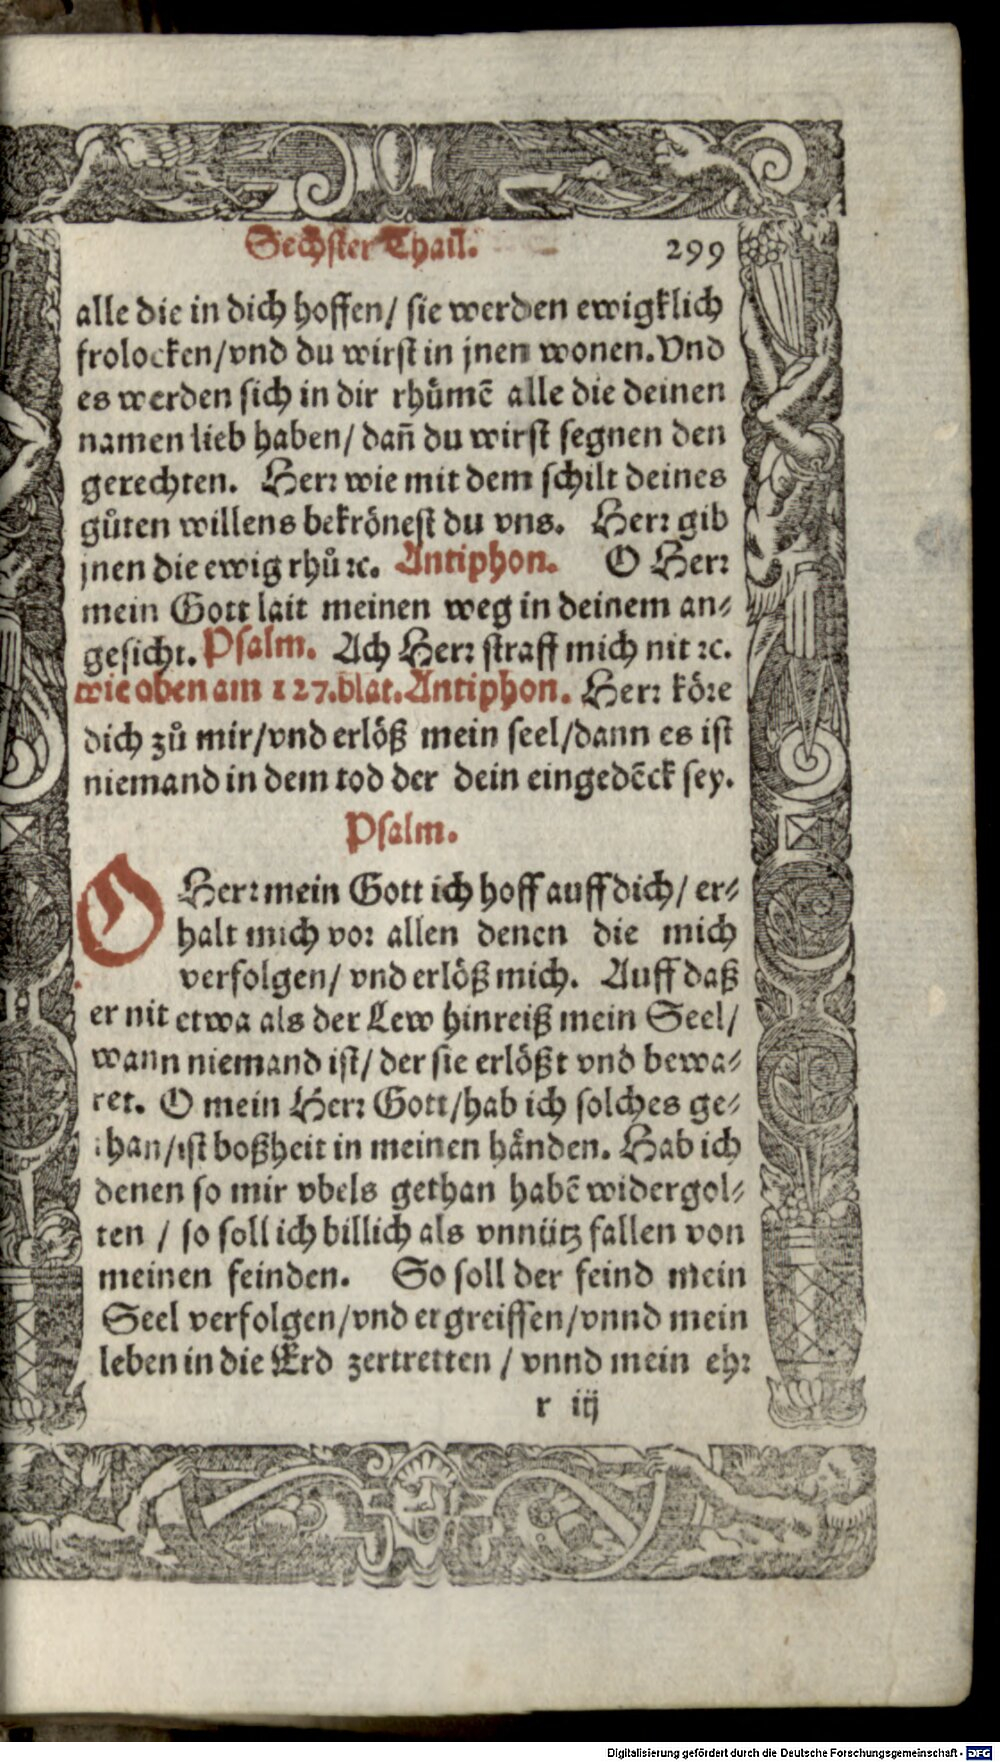 Sechster Thail. 299
alle die in dich hoffen/ sie werden ewigklich
frolocken/vnd du wirst in jnen wonen. Vnd
es werden sich in dir rhůmē alle die deinen
namen lieb haben/ dañ du wirst segnen den
gerechten. Herr wie mit dem schilt deines
gůten willens bekrönest du vns. Herr gib
jnen die ewig rhů ꝛc. Antiphon. O Herr
mein Gott lait meinen weg in deinem an⸗
gesicht. Psalm. Ach Herr straff mich nit ꝛc.
wie oben am 127. blat. Antiphon. Herr köre
dich zů mir/vnd erlöß mein seel/dann es ist
niemand in dem tod der dein eingedēck sey.
Psalm.
O Herr mein Gott ich hoff auff dich/ er⸗
halt mich vor allen denen die mich
verfolgen/ vnd erlöß mich. Auff daß
er nit etwa als der Lew hinreiß mein Seel/
wann niemand ist/ der sie erlößt vnd bewa⸗
ret. O mein Herr Gott/hab ich solches ge⸗
than/ist boßheit in meinen händen. Hab ich
denen so mir vbels gethan habē widergol⸗
ten / so soll ich billich als vnnütz fallen von
meinen feinden. So soll der feind mein
Seel verfolgen/vnd ergreiffen/vnnd mein
leben in die Erd zertretten / vnnd mein ehr
r iij
Digitalisierung gefördert durch die Deutsche Forschungsgemeinschaft - DFG